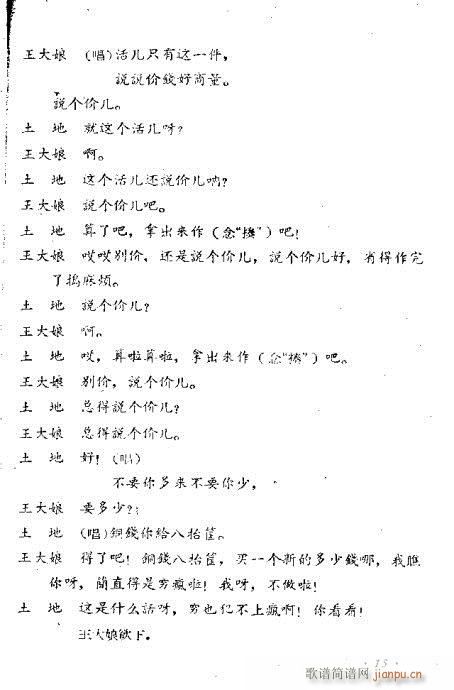 王大娘 (唱)活儿只有这一件，
說說价錢好商量。
說个价儿。
土 地 就这个活儿呀？
王大娘 啊。
土 地 这个活儿还說价儿吶？
王大娘 說个价儿吧。
土 地 算了吧，拿出来作(念“揍”)吧！
王大娘 哎哎别价，还是說个价儿，說个价儿好，省得作完
了搗麻烦。
土 地 說个价儿？
王大娘 啊。
土 地 哎，算啦算啦，拿出来作(念“揍”)吧。
王大娘 别价，說个价儿。
土 地 总得說个价儿？
王大娘 总得說个价儿。
土 地 好！(唱)
不要你多来不要你少，
王大娘 要多少？
土 地 (唱)銅錢你給八抬筐。
王大娘 得了吧！銅錢八抬筐，买一个新的多少錢哪，我瞧
你呀，簡直得是穷瘋啦！我呀，不做啦！
土 地 这是什么話呀，穷也犯不上瘋啊！你看看！
王大娘欲下。
15
歌谱简谱网
jianpu.cn